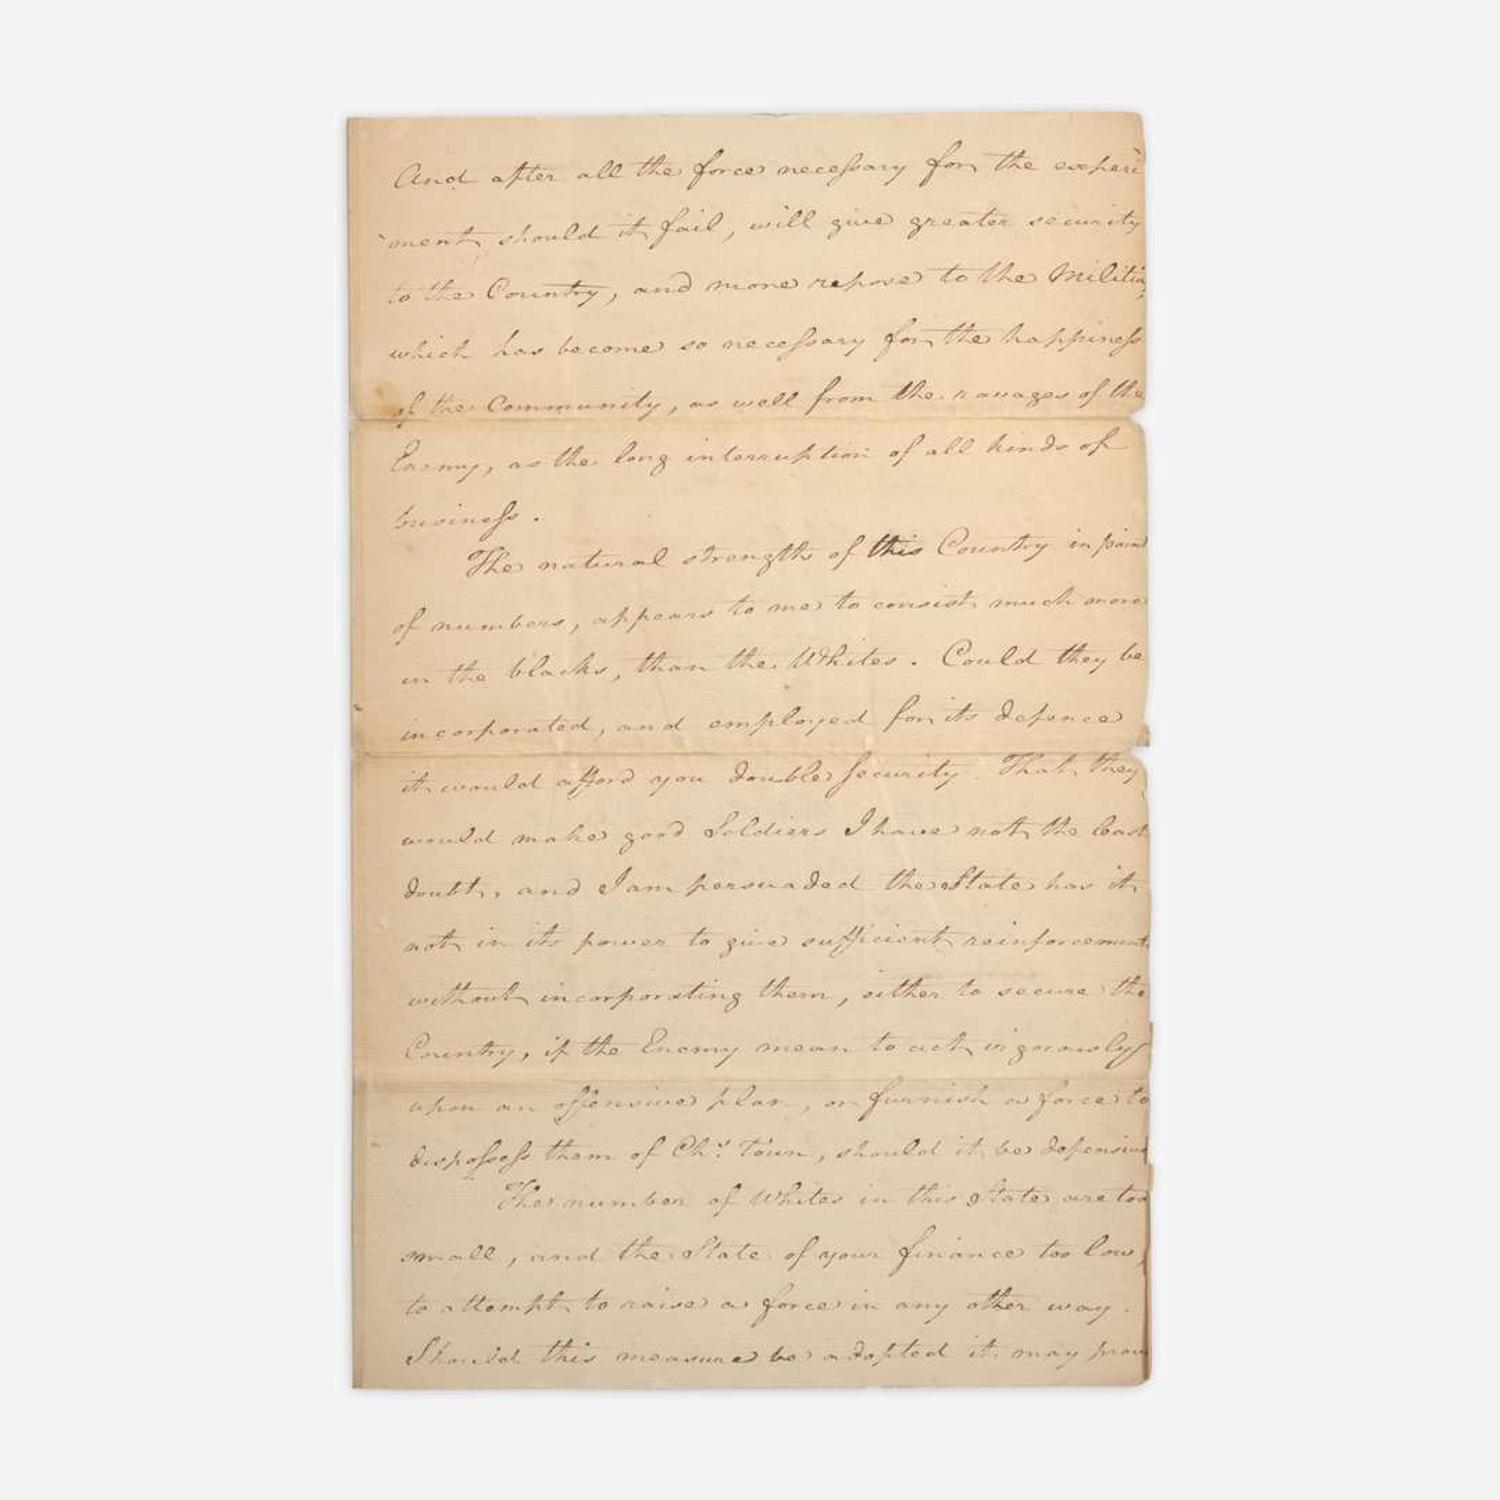 And after all the force necessary for the experi
ment should it fail, will give greater security
to the Country, and more repose to the Militia,
which has become so necessary for the happiness
of the Community, as well from the ravages of the
Enemy, as the long interruption of all kinds of
business.
The natural strength of this Country in point
of numbers, appears to me to consist much more
in the blacks, than the Whites. Could they be
incorporated, and employed for its defence
it would afford you double security. That they
would make good Soldiers I have not the least
doubt, and I am persuaded the State has it
not in its power to give sufficient reinforcements
without incorporating them, either to secure the
Country, if the Enemy mean to act vigorously
upon an offensive plan, or furnish a force to
dispossess them of Chs. Town, should it be defensive
The number of Whites in this State are too
small, and the State of your finance too low,
to attempt to raise a force in any other way.
Should this measure be adopted it may prove